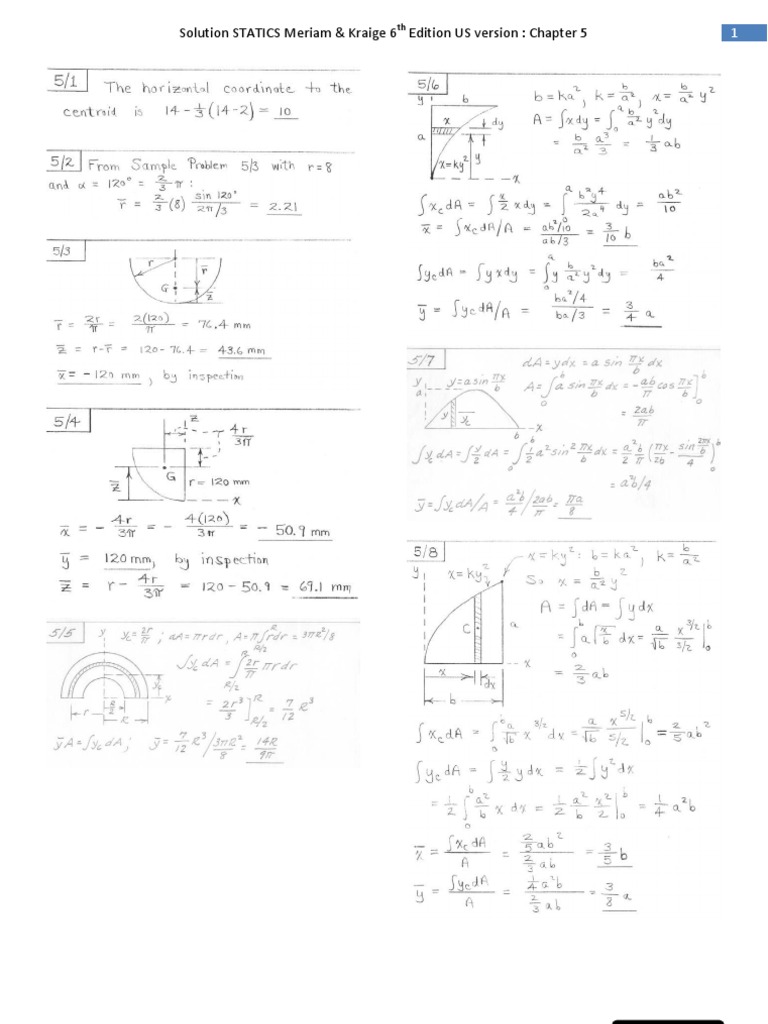 Solution STATICS Meriam & Kraige 6th Edition US version : Chapter 5
1
5/1 The horizontal coordinate to the
centroid is 14 - 1/3 (14-2) = 10
5/2 From Sample Problem 5/3 with r=8
and α = 120° = 2/3 π :
r̄ = 2/3 (8) sin 120° / 2π/3 = 2.21
5/3
r
r̄
G
z̄
r̄ = 2r/π = 2(120)/π = 76.4 mm
z̄ = r-r̄ = 120-76.4 = 43.6 mm
x̄ = -120 mm, by inspection
5/4
z
4r/3π
G
z̄
r = 120 mm
x
x̄ = - 4r/3π = - 4(120)/3π = - 50.9 mm
ȳ = 120 mm, by inspection
z̄ = r - 4r/3π = 120 - 50.9 = 69.1 mm
5/5 y yc = 2r/π ; dA = πrdr, A = π∫rdr = 3πR²/8
R
R/2
∫yc dA = ∫ 2r/π πrdr
R
R/2
yc
R/2
x
r
R
= 2r³/3 ]R R/2 = 7/12 R³
ȳA = ∫yc dA ; ȳ = 7/12 R³ / 3πR²/8 = 14R/9π
5/6
y b
b = ka², k = b/a², x = b/a² y²
x dy
A = ∫xdy = ∫ b/a² y² dy
a
0
a
y
= b/a² a³/3 = 1/3 ab
x=ky²
x
∫xc dA = ∫ x/2 xdy = ∫ b²y⁴/2a⁴ dy = ab²/10
a
0
x̄ = ∫xc dA/A = ab²/10 / ab/3 = 3/10 b
∫yc dA = ∫y xdy = ∫y b/a² y² dy = ba²/4
a
0
ȳ = ∫yc dA/A = ba²/4 / ba/3 = 3/4 a
5/7 dA = ydx = a sin πx/b dx
y y=a sin πx/b A = ∫ a sin πx/b dx = - ab/π cos πx/b ]
b
0
b
0
a
= 2ab/π
y yc
b x
∫yc dA = ∫ y/2 dA = ∫ 1/2 a² sin² πx/b dx = a²b/2π ( πx/2b - sin 2πx/b / 4 )
b
0
b
0
= a²b/4
ȳ = ∫yc dA/A = a²b/4 / 2ab/π = πa/8
5/8 x = ky² : b = ka², k = b/a²
y x=ky² So x = b/a² y²
A = ∫dA = ∫y dx
C a
= ∫ a √x/b dx = a/√b x^3/2 / 3/2 |
b
0
b
0
x
= 2/3 ab
x dx
b
∫xc dA = ∫ a/√b x^3/2 dx = a/√b x^5/2 / 5/2 | = 2/5 ab²
b
0
b
0
∫yc dA = ∫ y/2 y dx = 1/2 ∫y² dx
= 1/2 ∫ a²/b x dx = 1/2 a²/b x²/2 | = 1/4 a²b
b
0
b
0
x̄ = ∫xc dA / A = 2/5 ab² / 2/3 ab = 3/5 b
ȳ = ∫yc dA / A = 1/4 a²b / 2/3 ab = 3/8 a